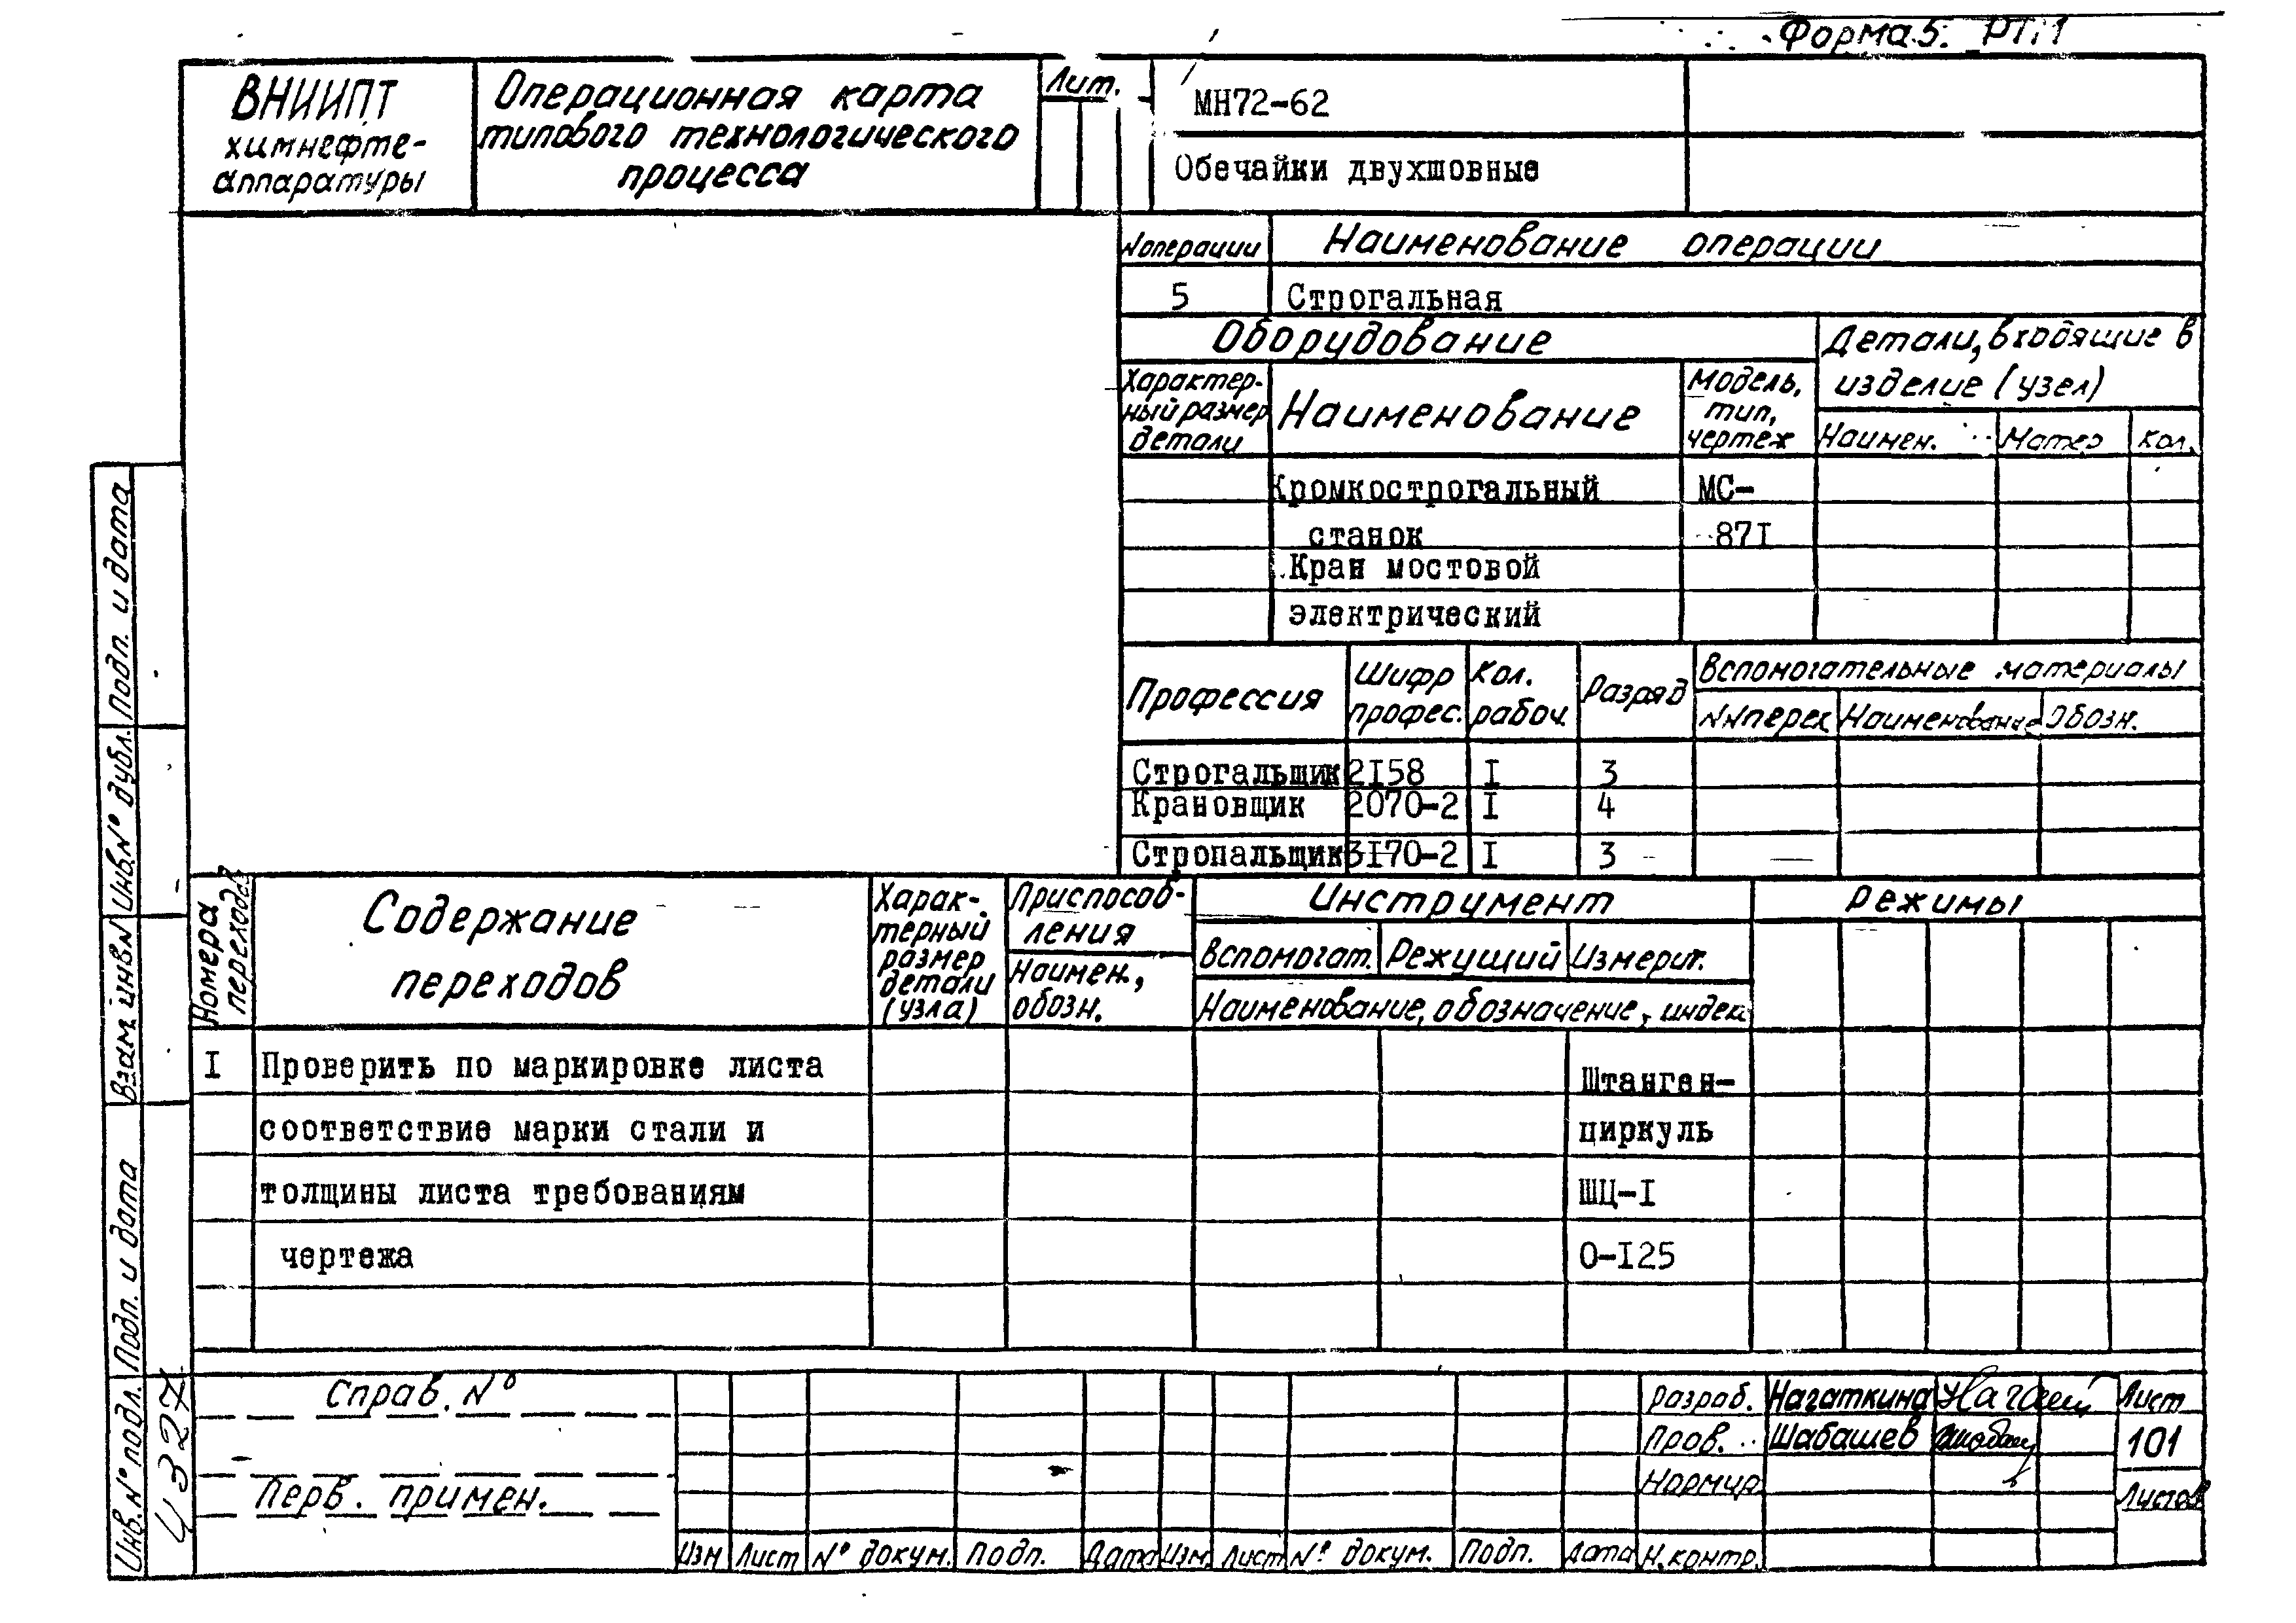 Форма 5. РТИ1
ВНИИПТ
химнефте-
аппаратуры
Операционная карта
типового технологического
процесса
Лит.
МН72-62
Обечайки двухшовные
Nоперации
Наименование операции
5
Строгальная
Оборудование
Детали, входящие в
изделие (узел)
Характер-
ный размер
детали
Наименование
Модель,
тип,
чертеж
Наимен.
Матер
Кол.
Кромкострогальный
МС-
станок
87I
Кран мостовой
электрический
Профессия
Шифр
профес.
Кол.
рабоч.
Разряд
Вспомогательные материалы
NNперех
Наименование
Обозн.
Строгальщик 2I58 I 3
Крановщик 2070-2 I 4
Стропальщик 3I70-2 I 3
Номера
переходов
Содержание
переходов
Харак-
терный
размер
детали
(узла)
Приспособ-
ления
Наимен.,
обозн.
Инструмент
Вспомогат.
Режущий
Измерит.
Наименование, обозначение, индек
Режимы
I Проверить по маркировке листа
Штанген-
соответствие марки стали и
циркуль
толщины листа требованиям
ШЦ-I
чертежа
0-I25
Справ. №
Перв. примен.
Изм Лист № докум. Подп. Дата Изм. Лист № докум. Подп. Дата
Разраб. Нагаткина
Пров. Шабашев
Нормир
Н.контр.
Лист
101
Листов
Подп. и дата
Инв.№ дубл.
Взам. инв.N
Подп. и дата
Инв.№ подл.
4327